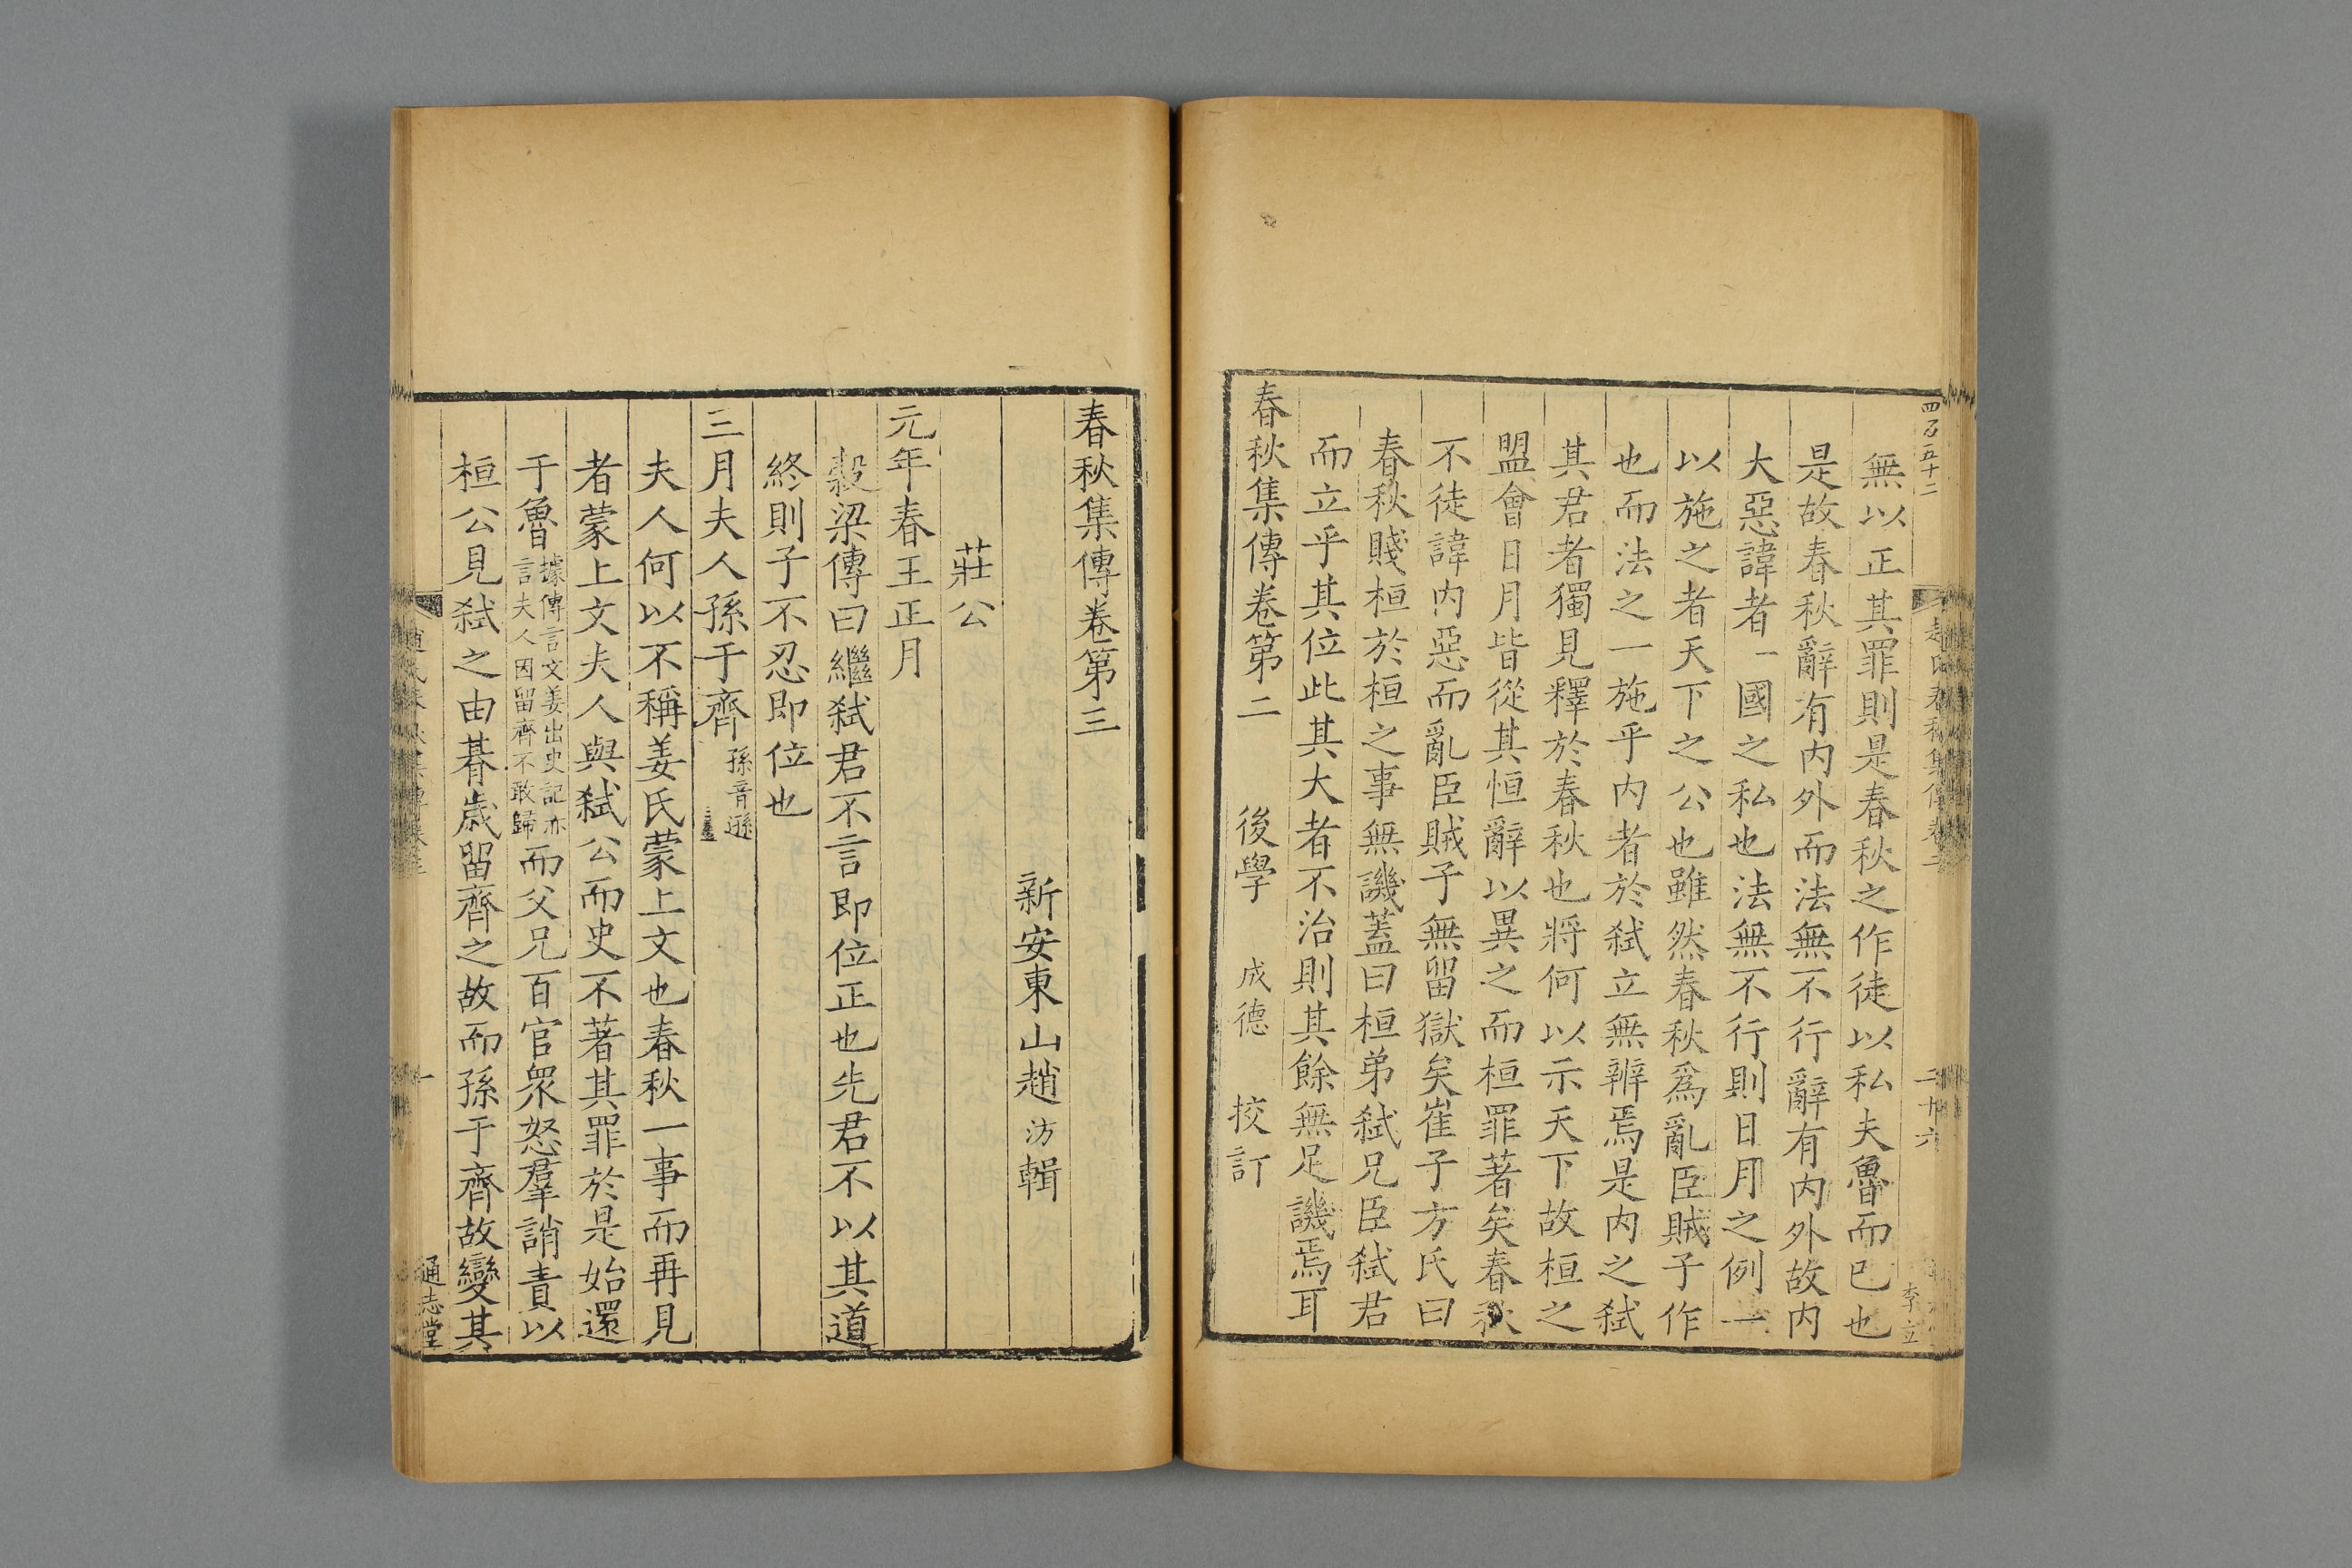 四百五十二
無以正其罪則是春秋之作徒以私夫魯而已也
是故春秋辭有内外而法無不行辭有内外故内
大惡諱者一國之私也法無不行則日月之例一
以施之者天下之公也雖然春秋爲亂臣賊子作
也而法之一施乎内者於弑立無辨焉是内之弑
其君者獨見釋於春秋也將何以示天下故桓之
盟會日月皆從其恒辭以異之而桓罪著矣春秋
不徒諱内惡而亂臣賊子無留獄矣崔子方氏曰
春秋賤桓於桓之事無譏蓋曰桓弟弑兄臣弑君
而立乎其位此其大者不治則其餘無足譏焉耳
春秋集傳卷第二
後學 成德 挍訂
趙氏春秋集傳卷二
二十六
李立
春秋集傳卷第三
新安東山趙汸輯
莊公
元年春王正月
穀梁傳曰繼弑君不言即位正也先君不以其道
終則子不忍即位也
三月夫人孫于齊孫音遜
夫人何以不稱姜氏蒙上文也春秋一事而再見
者蒙上文夫人與弑公而史不著其罪於是始還
于魯據傳言文姜出史記亦言夫人因留齊不敢歸而父兄百官衆怒羣誚責以
桓公見弑之由朞歲留齊之故而孫于齊故變其
一
通志堂